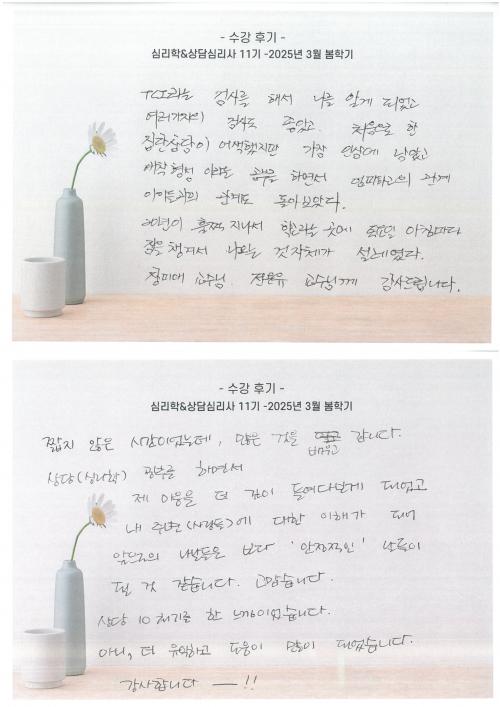 - 수강 후기 -
심리학&상담심리사 11기 -2025년 3월 봄학기
TCI라는 검사를 해서 나를 알게 되었고
여러가지의 검사도 좋았고. 처음으로 한
집단상담이 어색했지만 가장 인상에 남았고
애착 형성 이라는 공부를 하면서 엄마하고의 관계
아이들과의 관계도 돌아보았다.
20년이 훌쩍 지나서 학교라는 곳에 토요일 아침마다
짐을 챙겨서 나오는 것 자체가 설레였다.
교수님. 교수님께 감사드립니다.
- 수강 후기 -
심리학&상담심리사 11기 -2025년 3월 봄학기
짧지 않은 시간이었는데, 많은 것을 배우고 갑니다.
상담(심리학) 공부를 하면서
제 마음을 더 깊이 들여다보게 되었고
내 주변(사람들)에 대한 이해가 되어
앞으로의 나날들은 보다 '안정적인' 날들이
될 것 같습니다. 고맙습니다.
상담 10회기를 한 느낌이었습니다.
아니, 더 유익하고 도움이 많이 되었습니다.
감사합니다 —!!